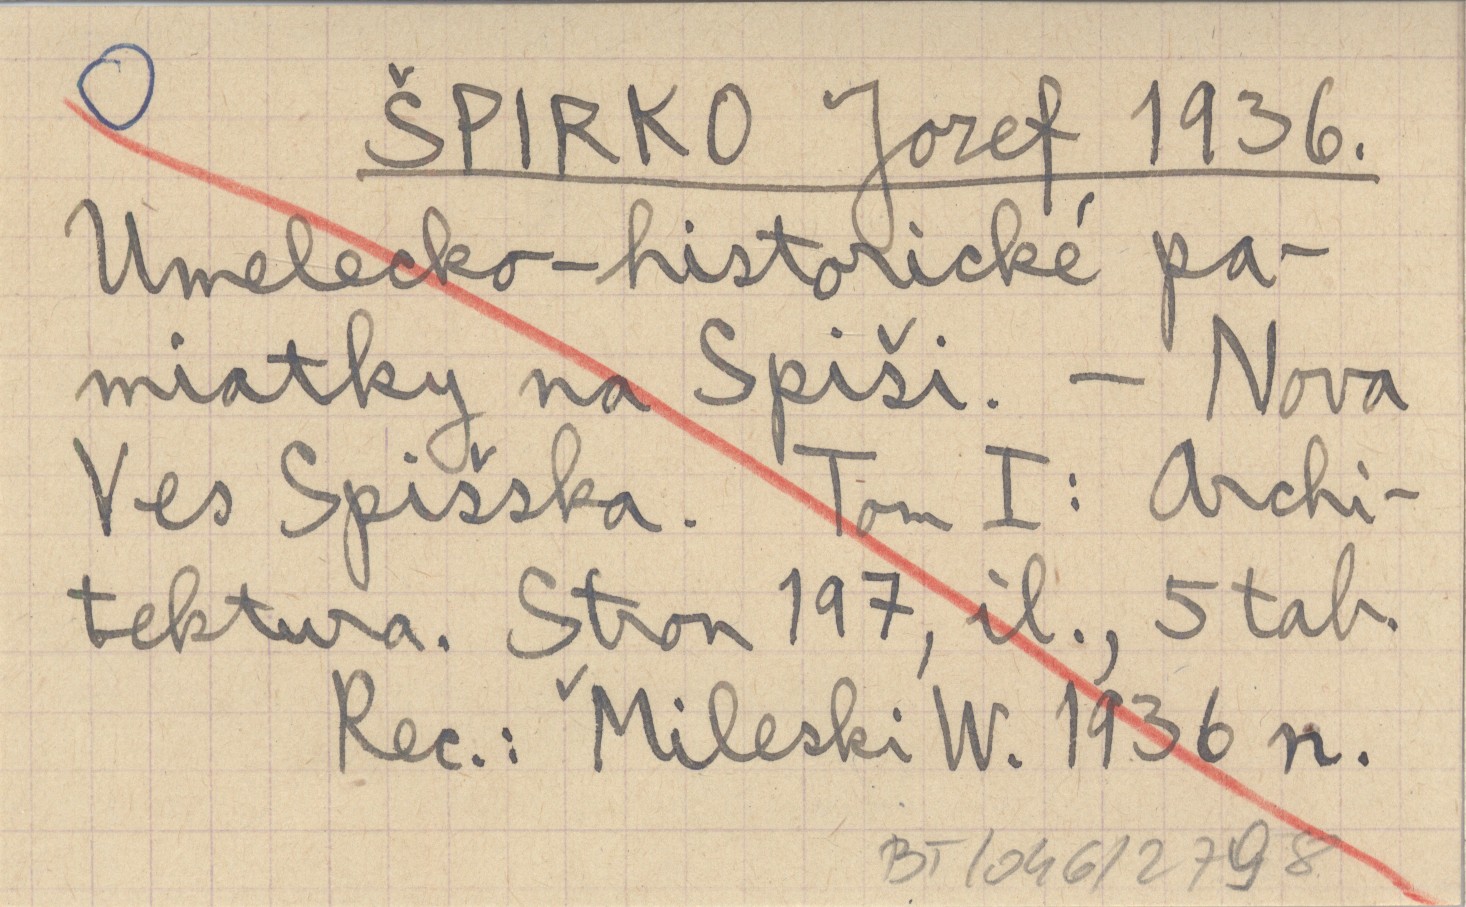 ŠPIRKO Jozef 1936.
Umelecko-historické pa-
miatky na Spiši. — Nova
Ves Spišska. Tom I: Archi-
tektura. Stron 197, il., 5 tab.
Rec.: ˇMileski W. 1936 n.
BT/046/2798